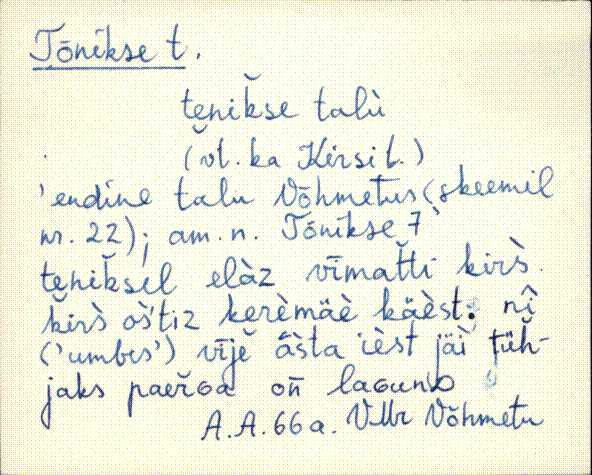 Tõnikse t.
tẹnik̆se talù
(vt. ka Kirsi t.)
'endine talu Võhmetus (skeemil
nr. 22); am. n. Tõnikse 7'
tẹnik̆sel elàz vīmat̆ti kirs̀.
kirs̀ os̀tiz kerèmäè käèst: nî
('umbes') vījĕ âs̄ta ièst jäi tüh-
jaks paerGa on̄ laGunD
A.A. 66 a. VMr Võhmetu